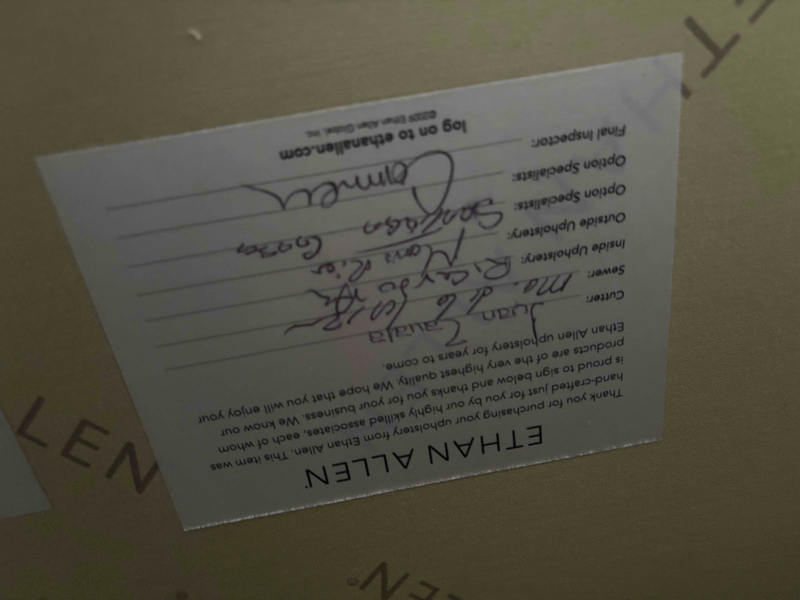 ETHAN ALLEN
Thank you for purchasing your upholstery from Ethan Allen. This item was
hand-crafted just for you by our highly skilled associates, each of whom
is proud to sign below and thanks you for your business. We know our
products are of the very highest quality. We hope that you will enjoy your
Ethan Allen upholstery for years to come.
Cutter: Juan Zavala
Sewer: Ma. de
Inside Upholstery: Ricardo
Outside Upholstery:
Option Specialists:
Option Specialists:
Final Inspector: Carmen
log on to ethanallen.com
©2009 Ethan Allen Global, Inc.
LEN
LEN®
ETHAN